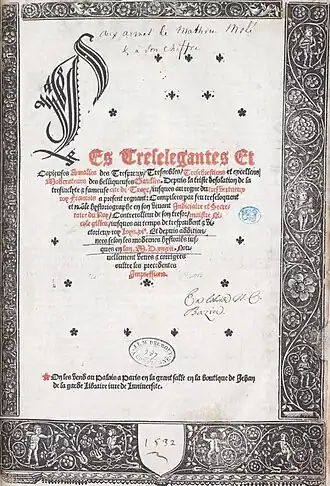 aux armes de Mathieu Molé
& a son chiffre
Les Treselegantes Et
Copieuses Annalles des Trespreux/ Tresnobles/ Treschrestiens et excellens
Moderateurs des belliqueuses Gaulles. Depuis la triste desolation de la
tresinclyte & fameuse cite de Troye/ iusques au regne du tresvertueux
roy Francois a present regnant: Compilees par feu treseloquent
et noble hystoriographe en son vivant Indiciaire et Secre
taire du Roy/ Contrerolleur de son tresor/ maistre Ni
cole gilles/ iusques au temps de tresprudent & vi
ctorieux roy Loys.xi. Et depuis addition
nees selon les modernes hystoriẽs ius
ques en Lan. Nou
vellement veues & corrigees
oultre les precedentes
Impressions.
Bazin
On les vend au Palais a Paris en la grant salle en la boutique de Jehan
de la garde Libraire iure de Luniversite.
1532